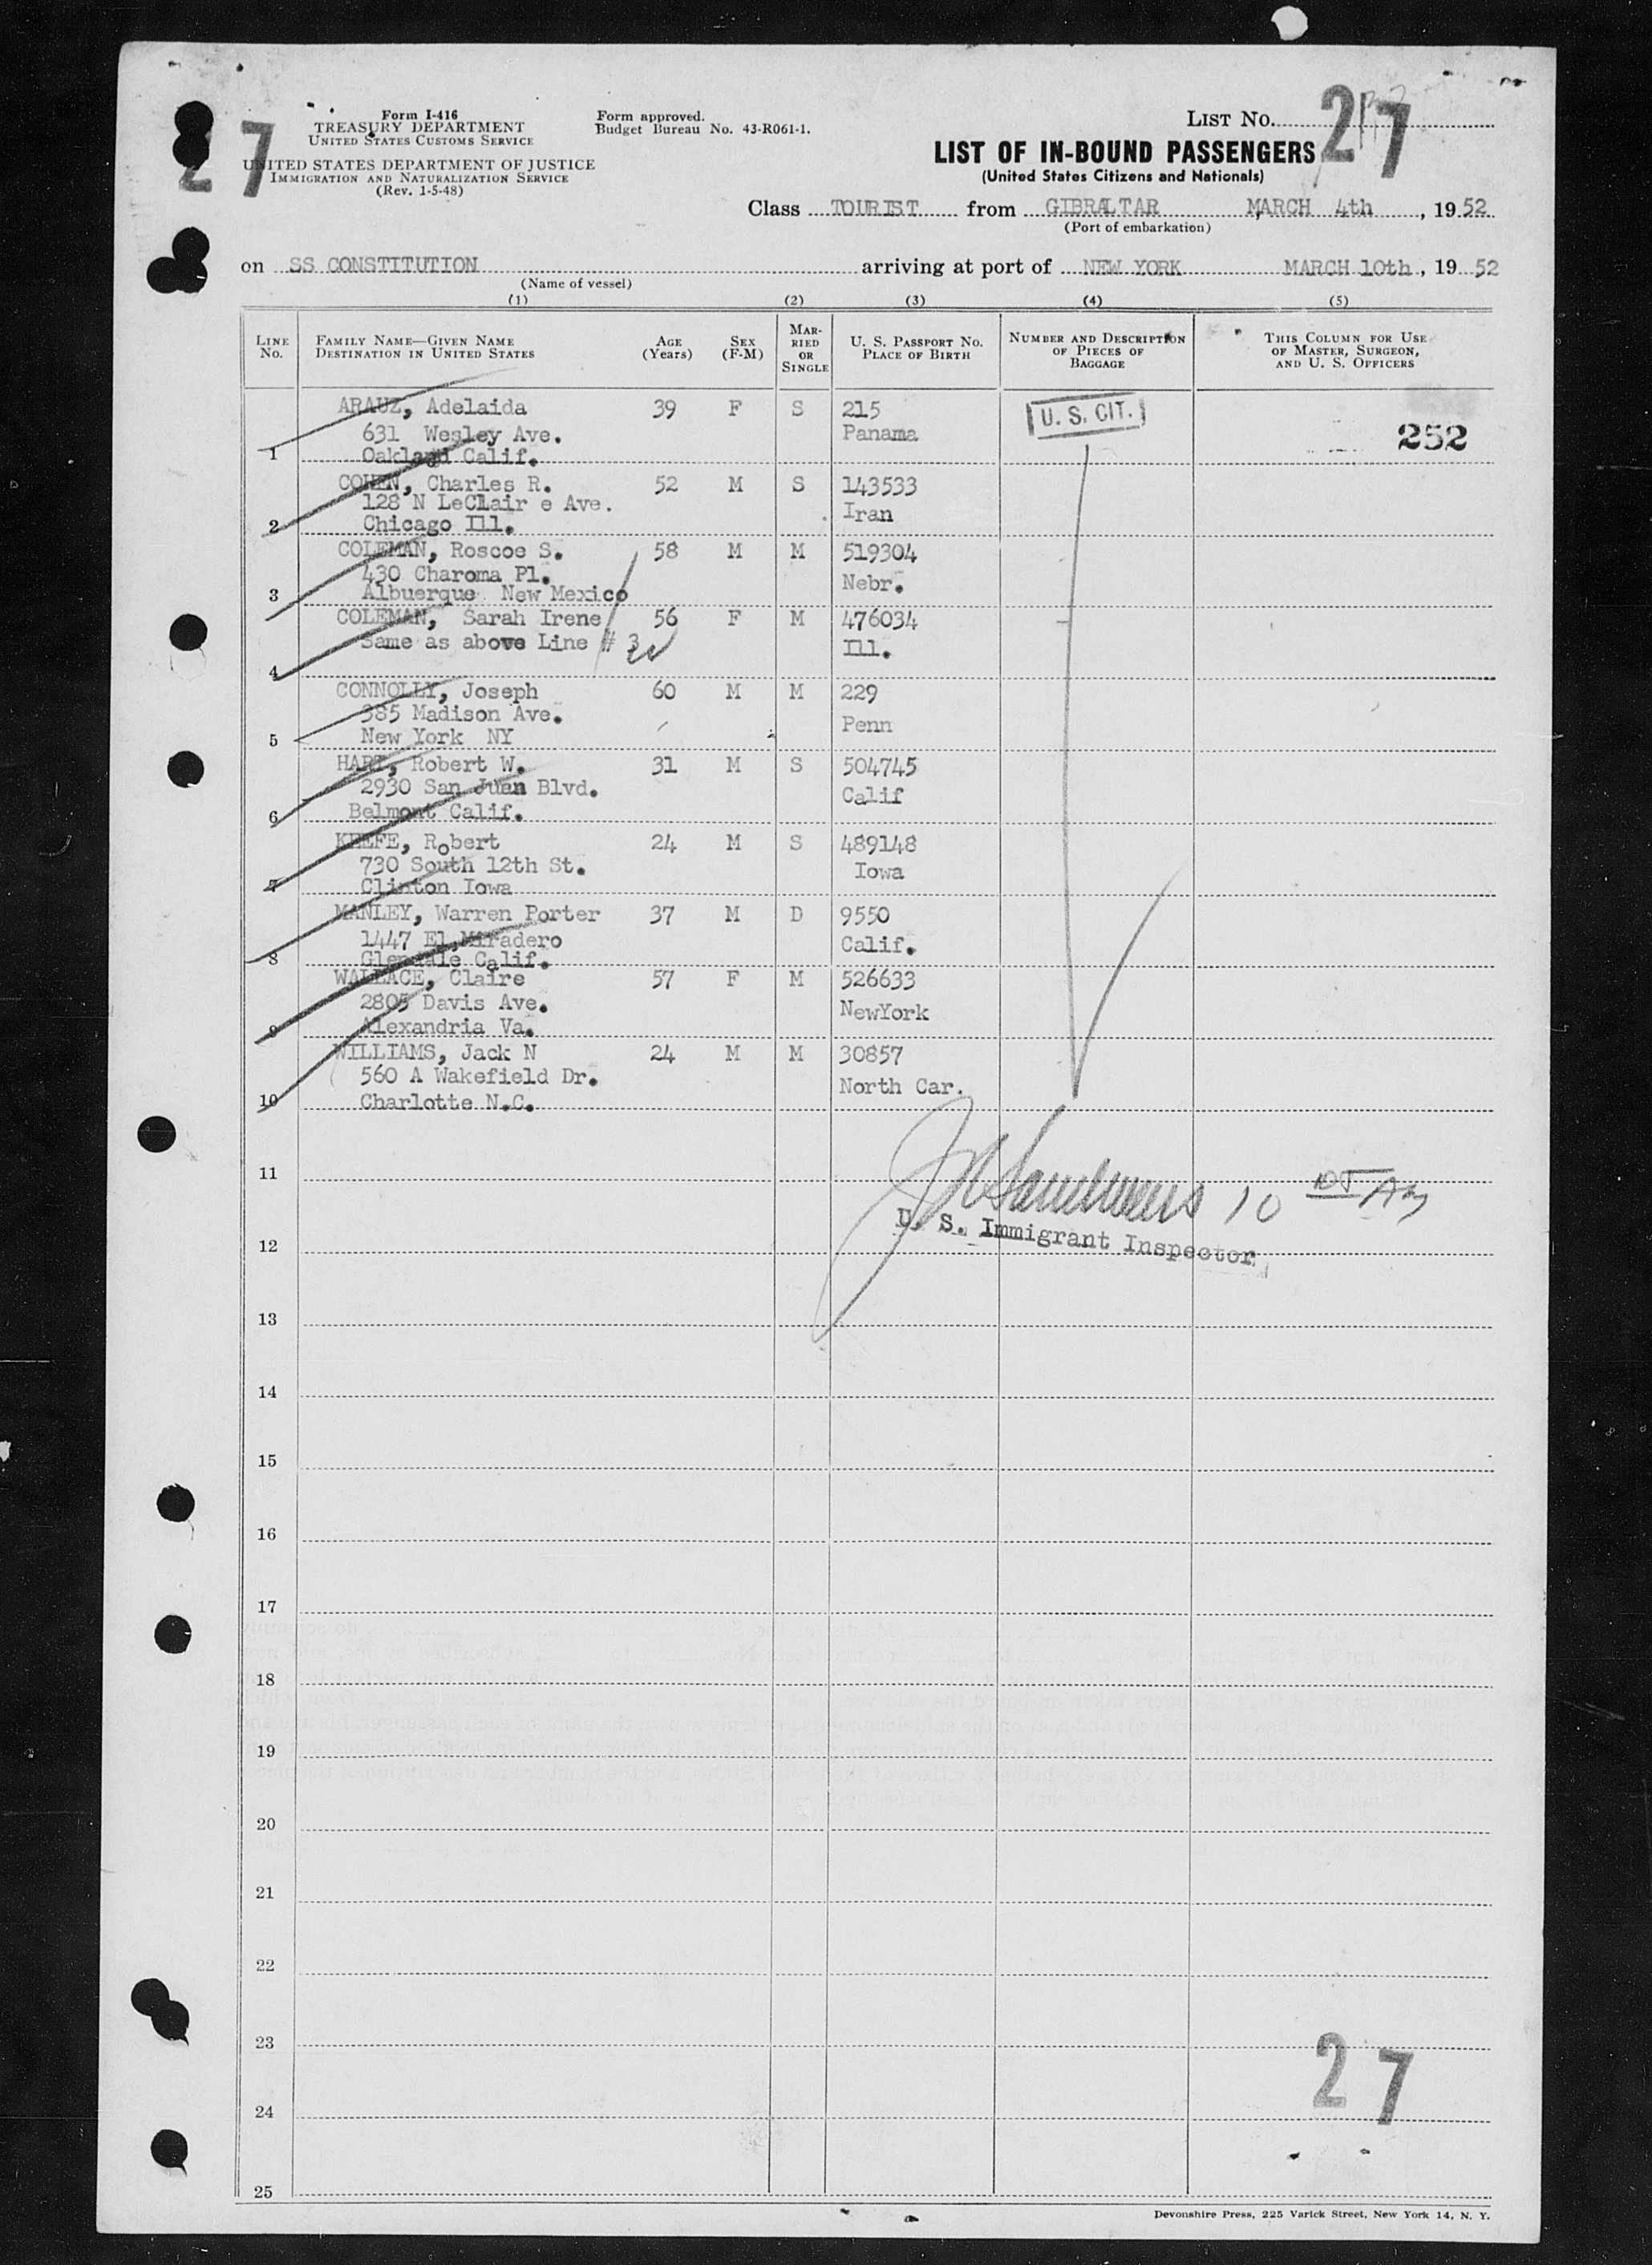 27
Form I-416
TREASURY DEPARTMENT
UNITED STATES CUSTOMS SERVICE
UNITED STATES DEPARTMENT OF JUSTICE
IMMIGRATION AND NATURALIZATION SERVICE
(Rev. 1-5-48)
Form approved.
Budget Bureau No. 43-R061-1.
LIST NO. 27
LIST OF IN-BOUND PASSENGERS
(United States Citizens and Nationals)
Class TOURIST from GIBRALTAR MARCH 4th, 1952
(Port of embarkation)
on SS CONSTITUTION arriving at port of NEW YORK MARCH 10th, 1952
(Name of vessel)
(1) (2) (3) (4) (5)
LINE NO. FAMILY NAME—GIVEN NAME DESTINATION IN UNITED STATES AGE (YEARS) SEX (F-M) MARRIED OR SINGLE U. S. PASSPORT NO. PLACE OF BIRTH NUMBER AND DESCRIPTION OF PIECES OF BAGGAGE THIS COLUMN FOR USE OF MASTER, SURGEON, AND U. S. OFFICERS
ARAUZ, Adelaida 39 F S 215 U. S. CIT.
631 Wesley Ave. Panama 252
1 Oakland Calif.
COHEN, Charles R. 52 M S 143533
128 N LeClair e Ave. Iran
2 Chicago Ill.
COLEMAN, Roscoe S. 58 M M 519304
430 Charoma Pl. Nebr.
3 Albuerque New Mexico
COLEMAN, Sarah Irene 56 F M 476034
Same as above Line # 3 Ill.
4
CONNOLLY, Joseph 60 M M 229
385 Madison Ave. Penn
5 New York NY
HART, Robert W. 31 M S 504745
2930 San Juan Blvd. Calif
6 Belmont Calif.
KEEFE, Robert 24 M S 489148
730 South 12th St. Iowa
7 Clinton Iowa
MANLEY, Warren Porter 37 M D 9550
1447 El Miradero Calif.
8 Glendale Calif.
WALLACE, Claire 57 F M 526633
2805 Davis Ave. NewYork
9 Alexandria Va.
WILLIAMS, Jack N 24 M M 30857
560 A Wakefield Dr. North Car.
10 Charlotte N.C.
11
10
U. S. Immigrant Inspector
12
13
14
15
16
17
18
19
20
21
22
23
27
24
25
Devonshire Press, 225 Varick Street, New York 14, N. Y.